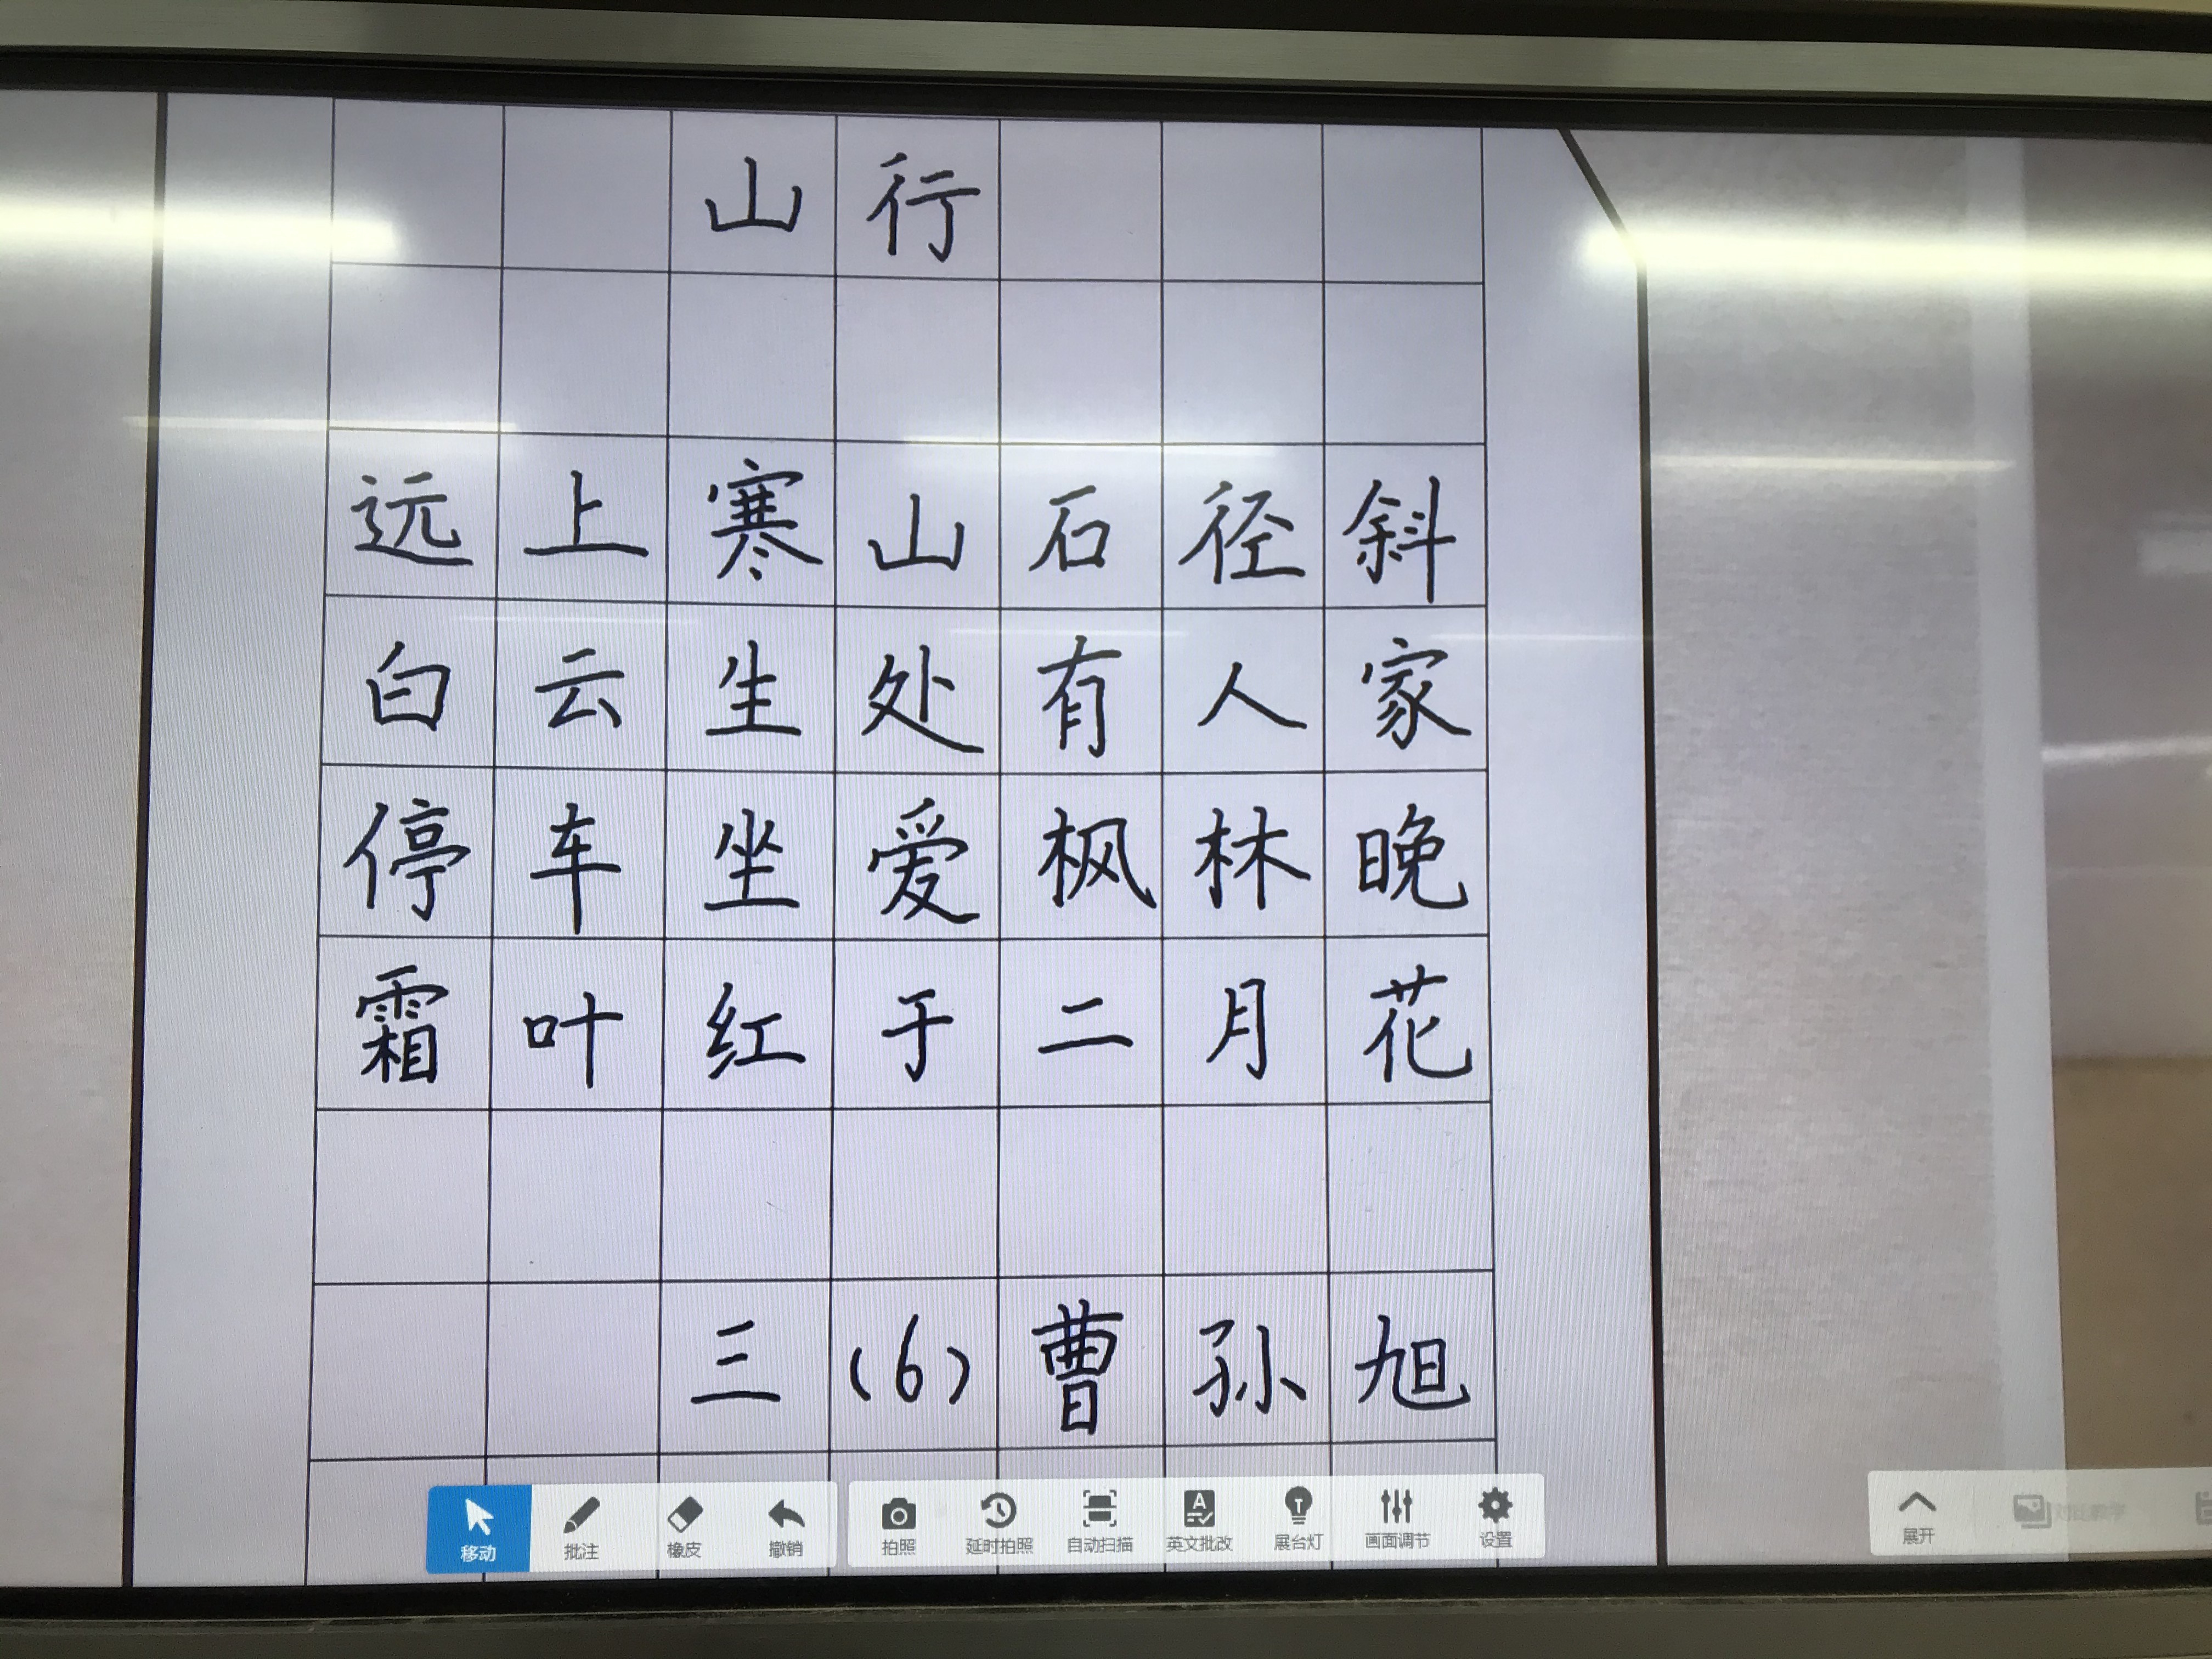 山行
远上寒山石径斜
白云生处有人家
停车坐爱枫林晚
霜叶红于二月花
三(6)曹孙旭
移动 批注 橡皮 撤销 拍照 延时拍照 自动扫描 英文批改 展台灯 画面调节 设置 展开